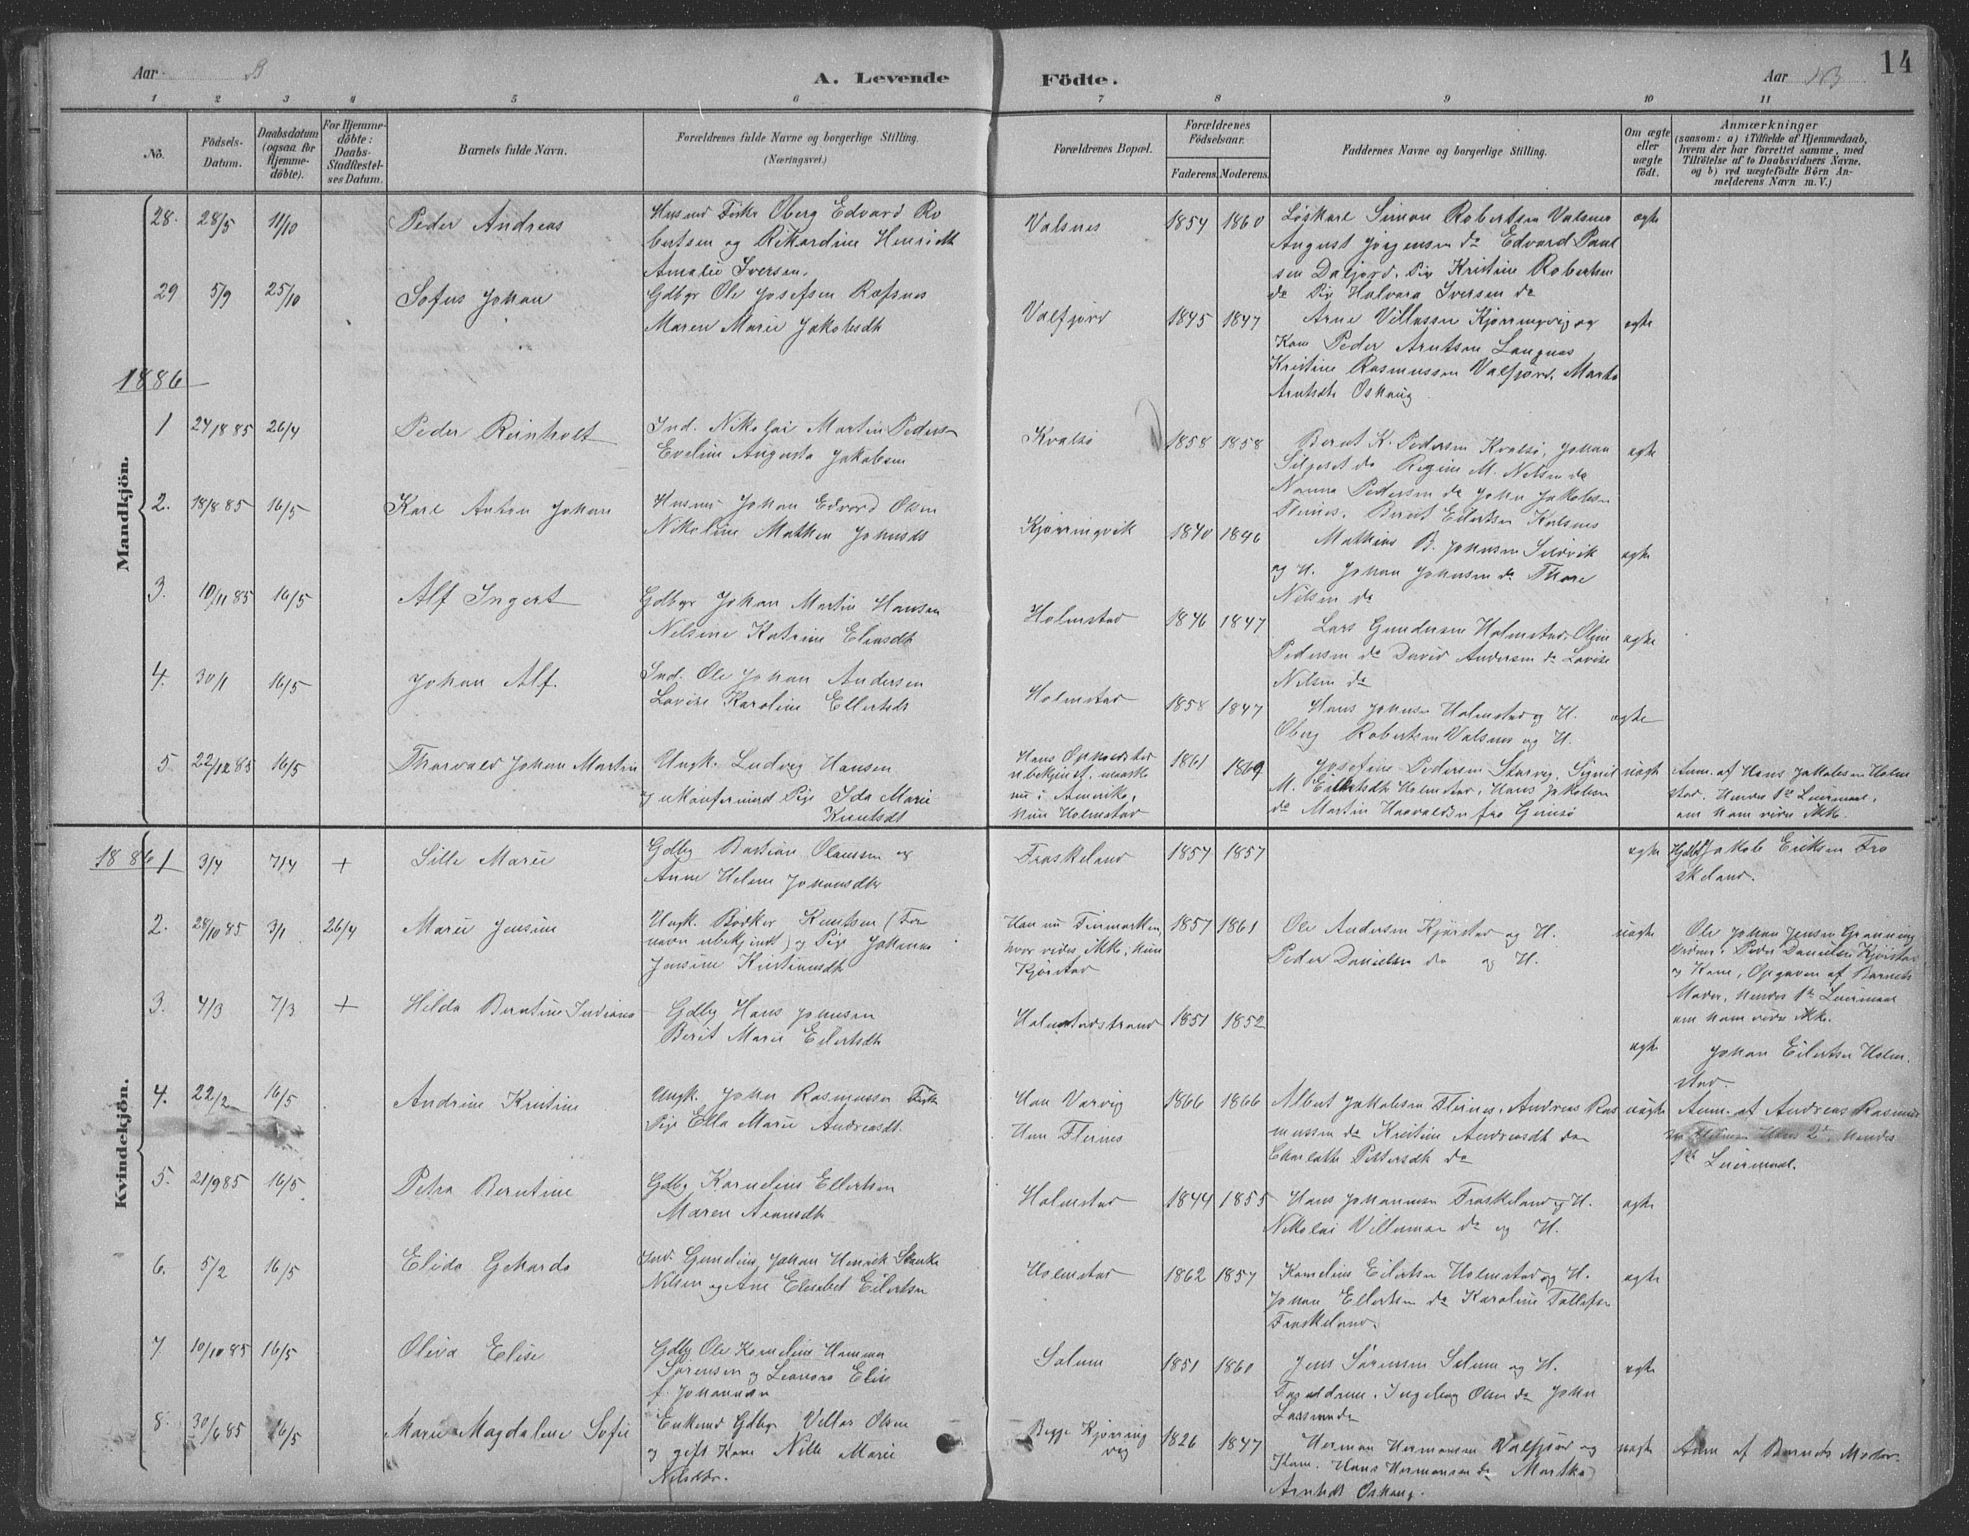 Aar B A. Levende Födte. Aar 14
1 2 3 4 5 6 7 8 9 10 11
No. Födsels-Datum. Daabsdatum (ogsaa for Hjemmedöbte). For Hjemmedöbte: Daabs-Stadfæstelses Datum. Barnets fulde Navn. Forældrenes fulde Navne og borgerlige Stilling. (Næringsvei.) Forældrenes Bopæl. Forældrenes Födselsaar. Faderens. Moderens. Faddernes Navne og borgerlige Stilling. Om ægte eller uægte födt. Anmærkninger (saasom: a) i Tilfælde af Hjemmedaab, hvem der har forrettet samme, med Tilföielse af to Daabsvidners Navne, og b) ved uægtefödte Börn Anmelderens Navn m. V.)
Mandkjön.
28. 28/5 11/10 Peder Andreas
Husmd Fisker Oberg Edvard Ro
bertsen og Rikardine Henriette
Amalie Iversen.
Valsnes 1854 1860
Löskarl Simon Robertsen Valsnes
August Jørgensen do Edvard Paul
sen Dalfjord. Pige Kristine Robertsen
do Pige Halvara Iversen do
ægte
29 5/9 25/10 Sofus Johan
Gdbgr Ole Josefsen Ræfsnes
Maren Marie Jakobsdt
Valfjord 1845 1847
Arne Villassen Kjørringvig og
Kone Peder Arntsen Langnes
Kristine Rasmussen Valfjord. Marta
Arntsdt Oshaug
ægte
1886
1 24/1885 26/4 Peder Reinholt
Ind. Nikolai Martin Peders
Eveline Augusta Jakobsen
Kvalsö 1858 1858
Berut K. Pedersen Kvalsö, Johan
do Regine M. Nilsen do
Nanna Pedersen do John Jakobsen
Flernes. Berut Eilertsen Kalsnes
ægte
2. 18/8 85 16/5 Karl Anton Johan
Husm Johan Edvard Olsen
Nikoline Mathea Johnsdt
Kjørringvik 1840 1846
Mathias B. Johnsen Sildvik
og H. Johan Johnsen do Thore
Nilsen do
ægte
3. 10/11 85 16/5 Alf Ingert
Gdbgr Johan Martin Hansen
Nilsine Katrine Eliasdt
Holmstad 1846 1847
Lars Gundersen Holmstad Oline
Pedersen do David Andersen do Lovise
Nilsen do
ægte
4. 30/1 16/5 Johan Alf.
Ind. Ole Johan Andersen
Lovise Karoline Ellertsdt
Holmstad 1858 1847
Hans Johnsen Holmstad og H.
Oberg Robertsen Valsnes og H.
ægte
5 22/12 85 16/5 Thorvald Johan Martin
Ungk. Ludvig Hansen
og ukonfirmerd Pige Ida Marie
Knutsdt
Hans Opholdssted
ubekjendt, maaske
nu i Amerika,
hun Holmstad
1861 1869
Josefine Pedersen Starvig, Sigvil
M. Eilertsdt Holmstad, Hans Jakobsen
do Martin Haavaldsen fra Gimsö
uægte
Anm. af Hans Jakobsen Holm
stad. Hendes 1ste Leiermaal,
om ham vides ikke.
Kvindekjön.
1886 1 3/4 7/4 + Sille Marie
Gdbg Bastian Olaussen og
Anne Helene Johansdtr
Fraskeland 1857 1857 ægte
Gdbr Jakob Eriksen Fra
skeland.
2. 28/10 85 3/1 26/4 Marie Jensine
Ungk. Bødker Knutsen (For
navn ubekjendt) og Pige Johanna
Jensine Kristiansdt
Han nu Finmarken,
hvor vides ikke, hun
Kjörstad
1857 1861
Ole Andersen Kjörstad og H.
Peder Danielsen do og H.
uægte
Ole Johan Jensen Grønning
Vidner: Peder Danielsen Kjörstad
og Kone, Opgaven af Barnets
Moder, hendes 1ste Leiermaal
om ham vides ikke.
3. 4/3 7/3 + Hilda Berntine Indiana
Gdbg Hans Johnsen
Berit Marie Eilertsdt
Holmstadstrand 1851 1852 ægte
Johan Eilertsen Holm
stad.
4. 22/2 16/5 Andrine Kristine
Ungk. John Rasmussen Fisk
Pige Ella Marie Andreasdt.
Han Varvig
Hun Flernes
1866 1866
Albert Jakobsen Flernes. Andreas Ras
mussen do Kristine Andreasdt do
Charlotte Pettersdt do
uægte
Anm. af Andreas Rasmus
sen Flernes Hans 2det, hendes
1ste Leiermaal.
5. 21/9 85 16/5 Petra Berntine
Gdbg Kornelius Ellertsen
Maren Aronsdt
Holmstad 1844 1855
Hans Johannesen Fraskeland og H.
Nikolai Villumsen do og H.
ægte
6. 5/2 16/5 Elida Geharda
Ind. Gunelius Johan Henrik Stenke
Nilsen og Ane Elisabet Eilertsen
Holmstad 1862 1857
Kornelius Eilertsen Holmstad og H.
Johan Ellertsen do Karoline Tollefsen
Fraskeland.
ægte
7 10/10 85 16/5 Oliva Elise
Gdbg Ole Kornelius Hammer
Sørensen og Leonora Elise
f. Johannesen
Selum 1851 1860
Jens Sørensen Selum og H.
Forældrene. Ingeborg Olsen do John
Larssen do
ægte
8. 30/6 85 16/5 Marie Magdalene Sofie
Enkemd Gdbgr Villas Olsen
og gift Kone Nille Marie
Nilsdtr.
Begge Kjørring
vig
1826 1847
Herman Hermansen Valfjord og
Kone. Hans Hermansen do Martha
Arntsdt Oshaug.
uægte
Anm af Barnets Moder.